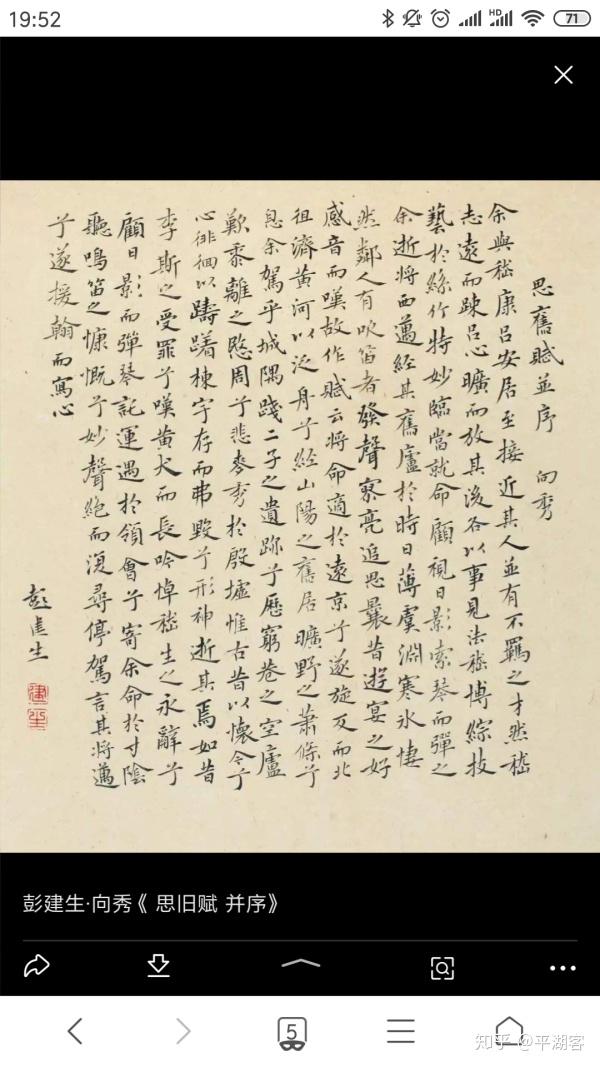 19:52
HD
71
思舊賦並序 向秀
余與嵇康呂安居至接近其人並有不羈之才然嵇
志遠而疎呂心曠而放其後各以事見法嵇博綜技
藝於絲竹特妙臨當就命顧視日影索琴而彈之
余逝將西邁經其舊廬於時日薄虞淵寒氷悽
然鄰人有吹笛者發聲寥亮追思曩昔遊宴之好
感音而嘆故作賦云將命適於遠京兮遂旋反而北
徂濟黃河以泛舟兮經山陽之舊居曠野之蕭條兮
息余駕乎城隅踐二子之遺跡兮歷窮巷之空廬
歎黍離之愍周兮悲麥秀於殷墟惟古昔以懷今兮
心徘徊以躊躇棟宇存而弗毀兮形神逝其焉如昔
李斯之受罪兮嘆黃犬而長吟悼嵇生之永辭兮
顧日影而彈琴託運遇於領會兮寄余命於寸陰
聽鳴笛之慷慨兮妙聲絕而復尋停駕言其將邁
兮遂援翰而寫心
彭建生
建生
彭建生·向秀《 思旧赋 并序》
5
知乎 @平湖客